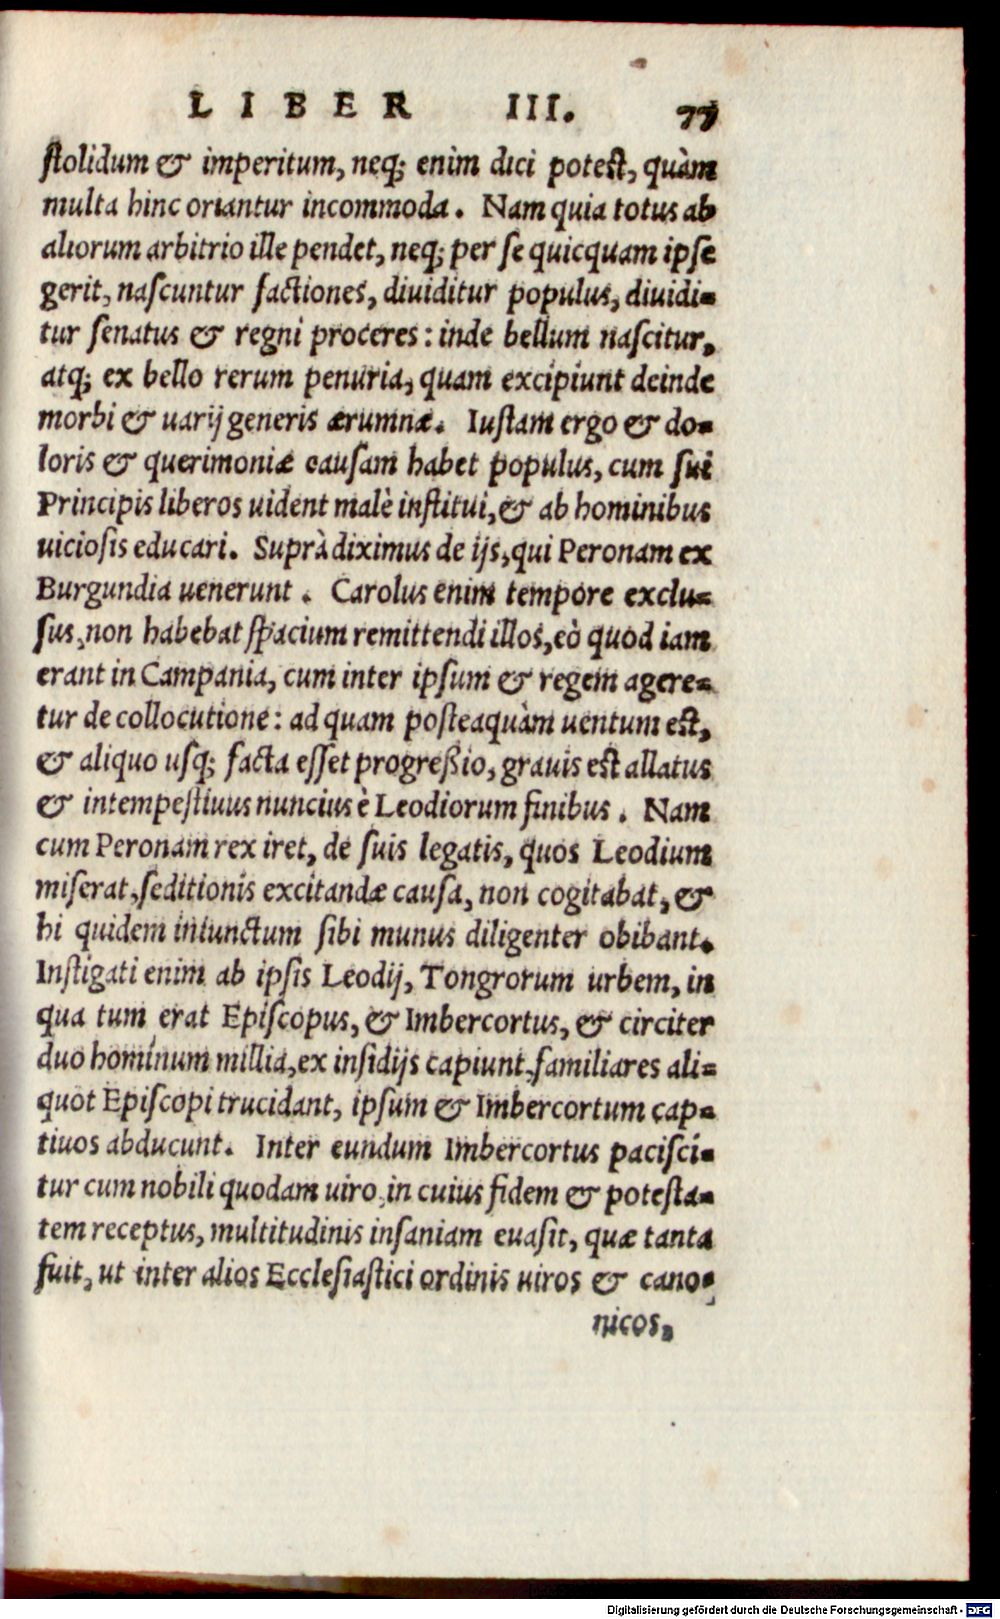 LIBER III. 77
ſtolidum & imperitum, neq; enim dici poteſt, quàm
multa hinc oriantur incommoda. Nam quia totus ab
aliorum arbitrio ille pendet, neq; per ſe quicquam ipſe
gerit, naſcuntur factiones, diuiditur populus, diuidi-
tur ſenatus & regni proceres: inde bellum naſcitur,
atq; ex bello rerum penuria, quam excipiunt deinde
morbi & uarij generis ærumnæ. Iuſtam ergo & do-
loris & querimoniæ cauſam habet populus, cum ſui
Principis liberos uident malè inſtitui, & ab hominibus
uicioſis educari. Suprà diximus de ijs, qui Peronam ex
Burgundia uenerunt. Carolus enim tempore exclu-
ſus, non habebat ſpacium remittendi illos, eò quod iam
erant in Campania, cum inter ipſum & regem agere-
tur de collocutione: ad quam poſteaquàm uentum eſt,
& aliquo uſq; facta eſſet progreßio, grauis eſt allatus
& intempeſtiuus nuncius è Leodiorum finibus. Nam
cum Peronam rex iret, de ſuis legatis, quos Leodium
miſerat, ſeditionis excitandæ cauſa, non cogitabat, &
hi quidem iniunctum ſibi munus diligenter obibant.
Inſtigati enim ab ipſis Leodij, Tongrorum urbem, in
qua tum erat Epiſcopus, & Imbercortus, & circiter
duo hominum millia, ex inſidijs capiunt, familiares ali-
quot Epiſcopi trucidant, ipſum & Imbercortum cap-
tiuos abducunt. Inter eundum Imbercortus paciſci-
tur cum nobili quodam uiro, in cuius fidem & poteſta-
tem receptus, multitudinis inſaniam euaſit, quæ tanta
fuit, ut inter alios Eccleſiaſtici ordinis uiros & cano-
nicos,
Digitalisierung gefördert durch die Deutsche Forschungsgemeinschaft - DFG